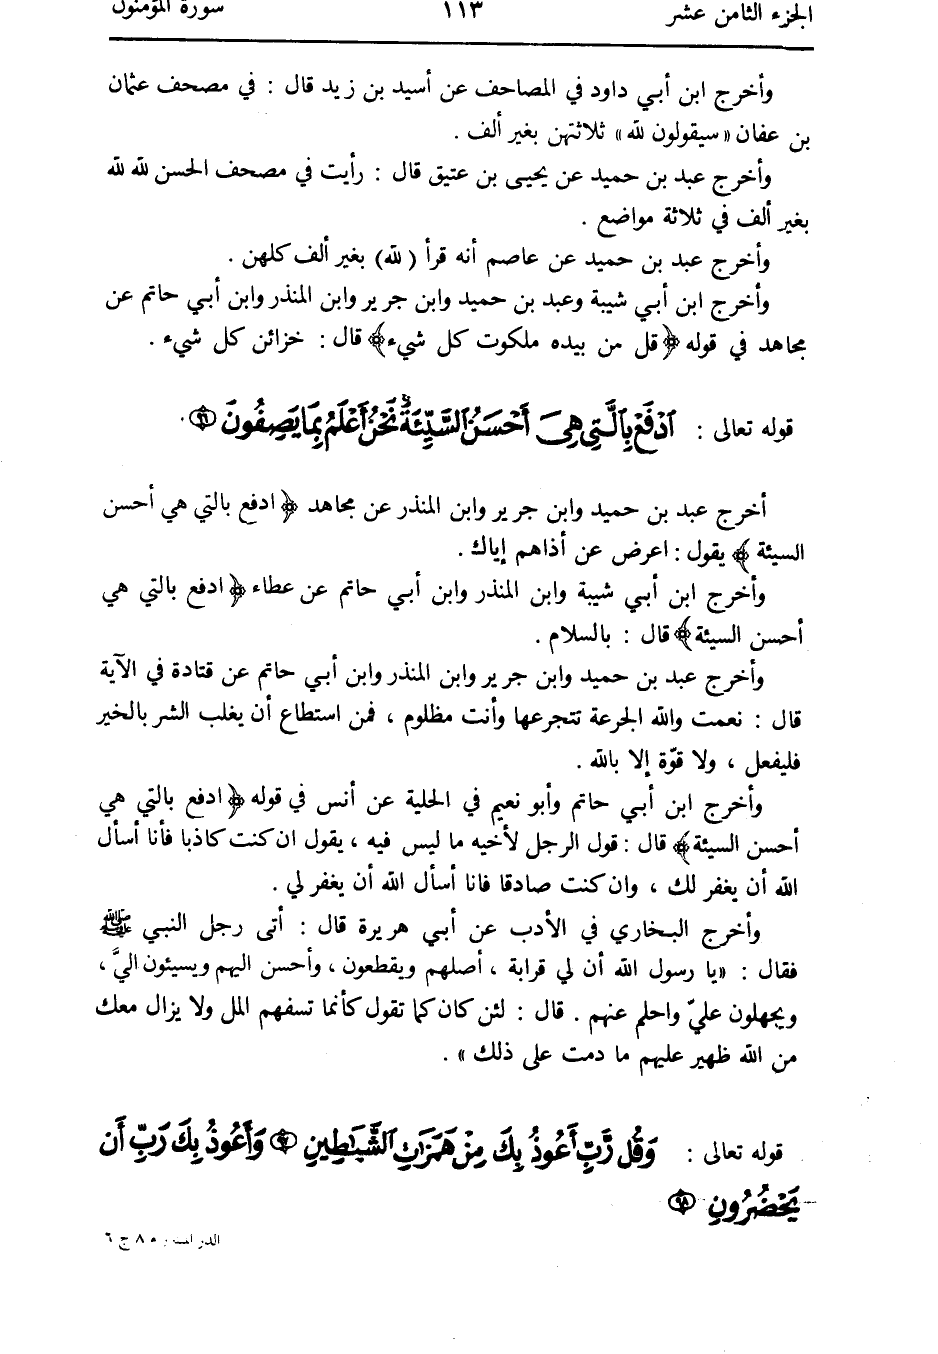 الجزء الثامن عشر ١١٣ سورة المؤمنون
وأخرج ابن أبي داود في المصاحف عن أسيد بن زيد قال : في مصحف عثمان
بن عفان «سيقولون لله» ثلاثتهن بغير ألف .
وأخرج عبد بن حميد عن يحيى بن عتيق قال : رأيت في مصحف الحسن لله لله
بغير ألف في ثلاثة مواضع .
وأخرج عبد بن حميد عن عاصم أنه قرأ (لله) بغير ألف كلهن .
وأخرج ابن أبي شيبة وعبد بن حميد وابن جرير وابن المنذر وابن أبي حاتم عن
مجاهد في قوله ﴿قل من بيده ملكوت كل شيء﴾ قال : خزائن كل شيء .
قوله تعالى : ٱدْفَعْ بِٱلَّتِى هِىَ أَحْسَنُ ٱلسَّيِّئَةَۚ نَحْنُ أَعْلَمُ بِمَا يَصِفُونَ ٩٦
أخرج عبد بن حميد وابن جرير وابن المنذر عن مجاهد ﴿ادفع بالتي هي أحسن
السيئة﴾ يقول : اعرض عن أذاهم إياك .
وأخرج ابن أبي شيبة وابن المنذر وابن أبي حاتم عن عطاء ﴿ادفع بالتي هي
أحسن السيئة﴾ قال : بالسلام .
وأخرج عبد بن حميد وابن جرير وابن المنذر وابن أبي حاتم عن قتادة في الآية
قال : نعمت والله الجرعة تتجرعها وأنت مظلوم ، فمن استطاع أن يغلب الشر بالخير
فليفعل ، ولا قوّة إلا بالله .
وأخرج ابن أبي حاتم وأبو نعيم في الحلية عن أنس في قوله ﴿ادفع بالتي هي
أحسن السيئة﴾ قال : قول الرجل لأخيه ما ليس فيه ، يقول ان كنت كاذبا فأنا أسأل
الله أن يغفر لك ، وان كنت صادقا فانا أسأل الله أن يغفر لي .
وأخرج البخاري في الأدب عن أبي هريرة قال : أتى رجل النبي ﷺ
فقال : «يا رسول الله أن لي قرابة ، أصلهم ويقطعون ، وأحسن اليهم ويسيئون اليَّ ،
ويجهلون عليّ واحلم عنهم . قال : لئن كان كما تقول كأنما تسفهم المل ولا يزال معك
من الله ظهير عليهم ما دمت على ذلك» .
قوله تعالى : وَقُل رَّبِّ أَعُوذُ بِكَ مِنْ هَمَزَٰتِ ٱلشَّيَٰطِينِ ٩٧ وَأَعُوذُ بِكَ رَبِّ أَن
يَحْضُرُونِ ٩٨
م ٨ ج ٦